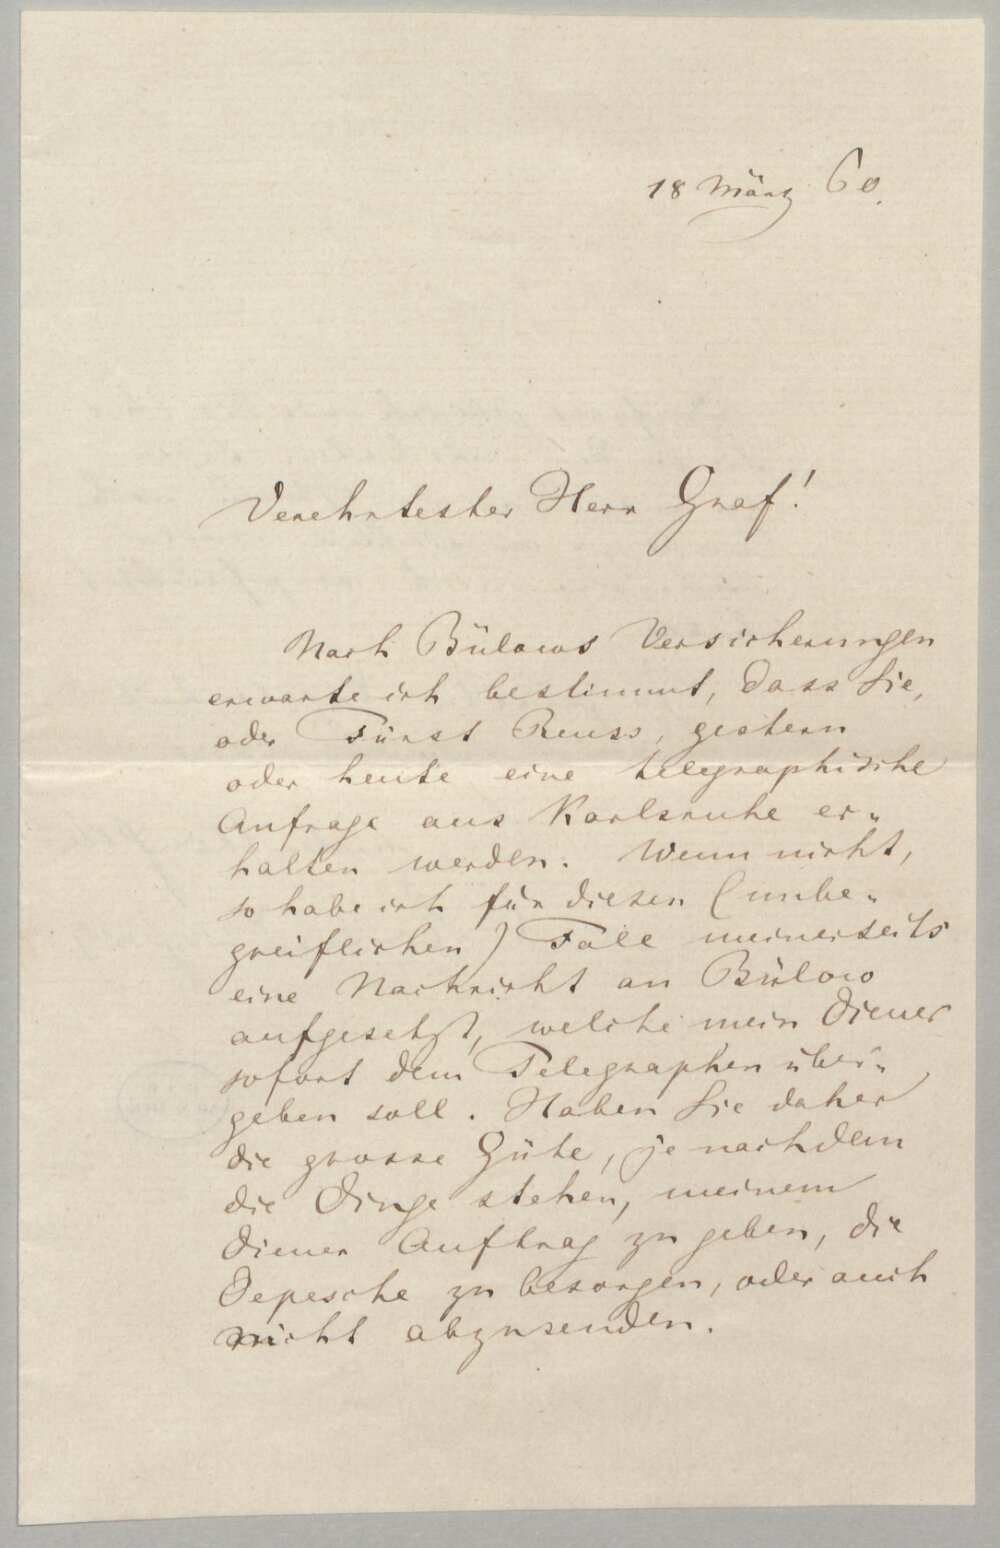 18 März 60.
Verehrtester Herr Graf!
Nach Bülows Versicherungen
erwarte ich bestimmt, dass Sie,
oder Fürst Reuss, gestern
oder heute eine telegraphische
Anfrage aus Karlsruhe er-
halten werden. Wenn nicht,
so habe ich für diesen (unbe-
greiflichen) Fall meinerseits
eine Nachricht an Bülow
aufgesetzt, welche mein Diener
sofort dem Telegraphen über-
geben soll. Haben Sie daher
die grosse Güte, je nachdem
die Dinge stehen, meinem
Diener Auftrag zu geben, die
Depesche zu besorgen, oder auch
nicht abzusenden.